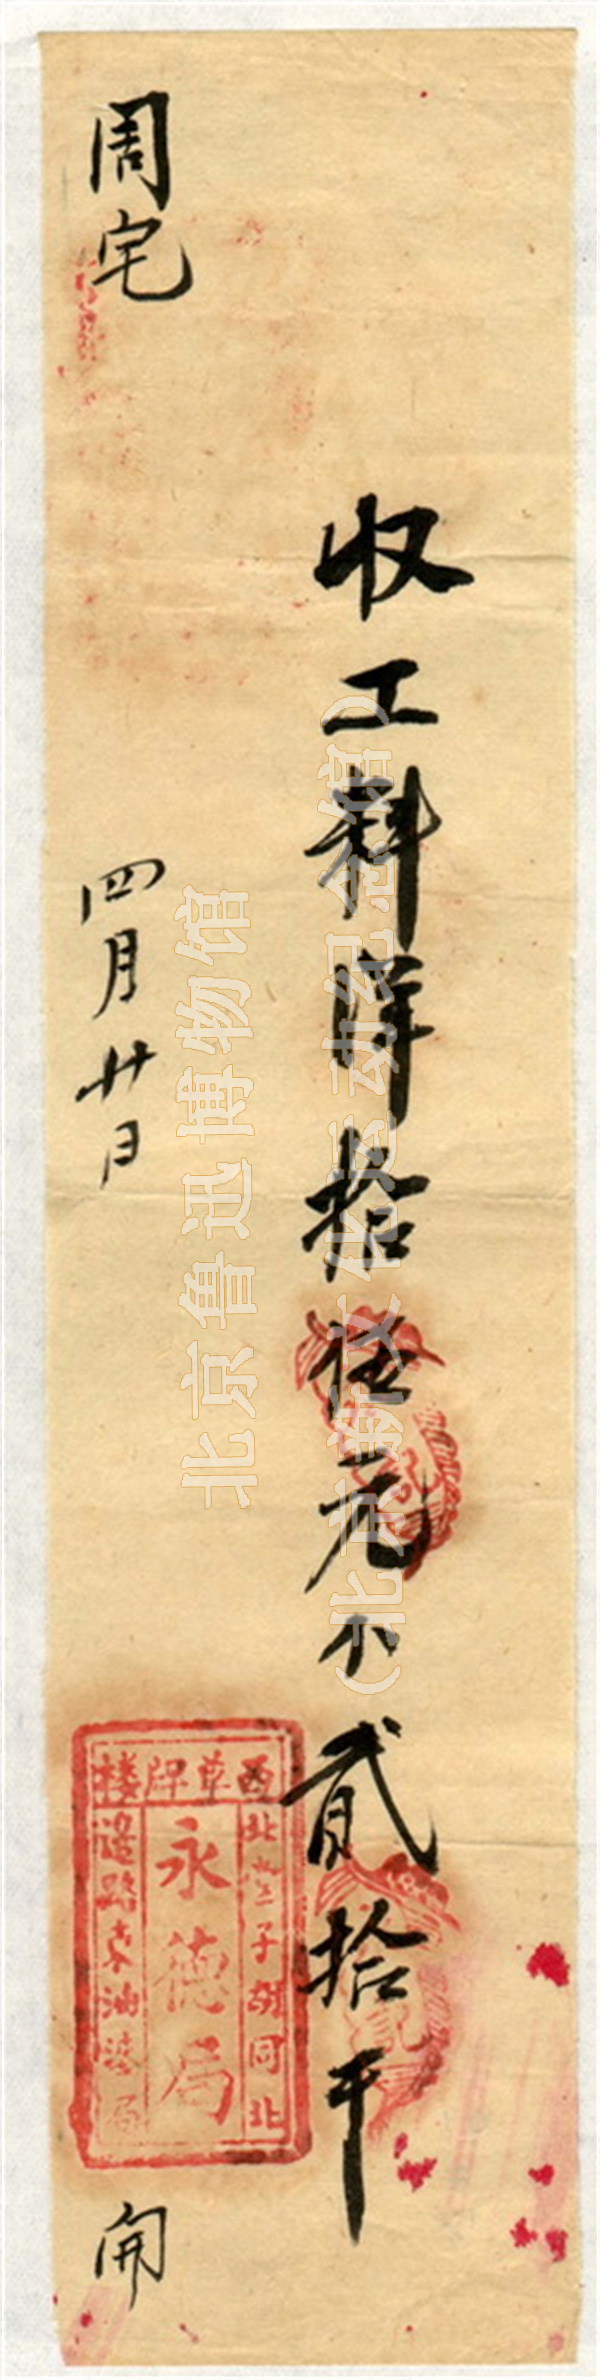 收工料洋拾伍元小貳拾干
周宅
四月廿日
開
西草牌樓
北堂子胡同北
永德局
邊路東油漆局
北京鲁迅博物馆
(北京新文化运动纪念馆)